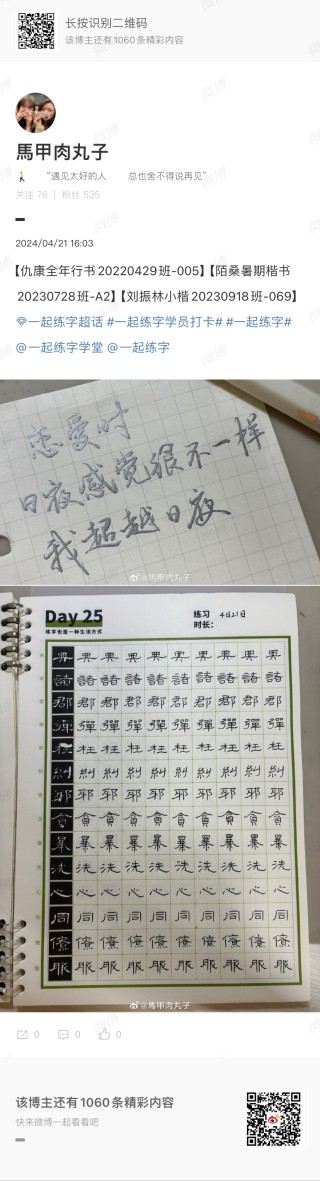 长按识别二维码
该博主还有1060条精彩内容
馬甲肉丸子
“遇见太好的人 总也舍不得说再见”
关注 76 | 粉丝 535
2024/04/21 16:03
【仇康全年行书20220429班-005】【陌桑暑期楷书
20230728班-A2】【刘振林小楷20230918班-069】
一起练字超话 #一起练字学员打卡# #一起练字#
@一起练字学堂 @一起练字
恋爱时
日夜感觉很不一样
我超越日夜
@馬甲肉丸子
Day 25
练字也是一种生活方式
练习 4月21日
时长:
典 典 典 典 典 典 典 典
諸 諸 諸 諸 諸 諸 諸 諸 諸
郡 郡 郡 郡 郡 郡 郡 郡 郡
彈 彈 彈 彈 彈 彈 彈 彈 彈
枉 枉 枉 枉 枉 枉 枉 枉 枉
糾 糾 糾 糾 糾 糾 糾 糾 糾
邪 邪 邪 邪 邪 邪 邪 邪 邪
貪 貪 貪 貪 貪 貪 貪 貪 貪
暴 暴 暴 暴 暴 暴 暴 暴 暴
洗 洗 洗 洗 洗 洗 洗 洗 洗
心 心 心 心 心 心 心 心 心
同 同 同 同 同 同 同 同 同
僚 僚 僚 僚 僚 僚 僚 僚 僚
服 服 服 服 服 服 服 服 服
@馬甲肉丸子
0 0 0
该博主还有1060条精彩内容
快来微博一起看看吧